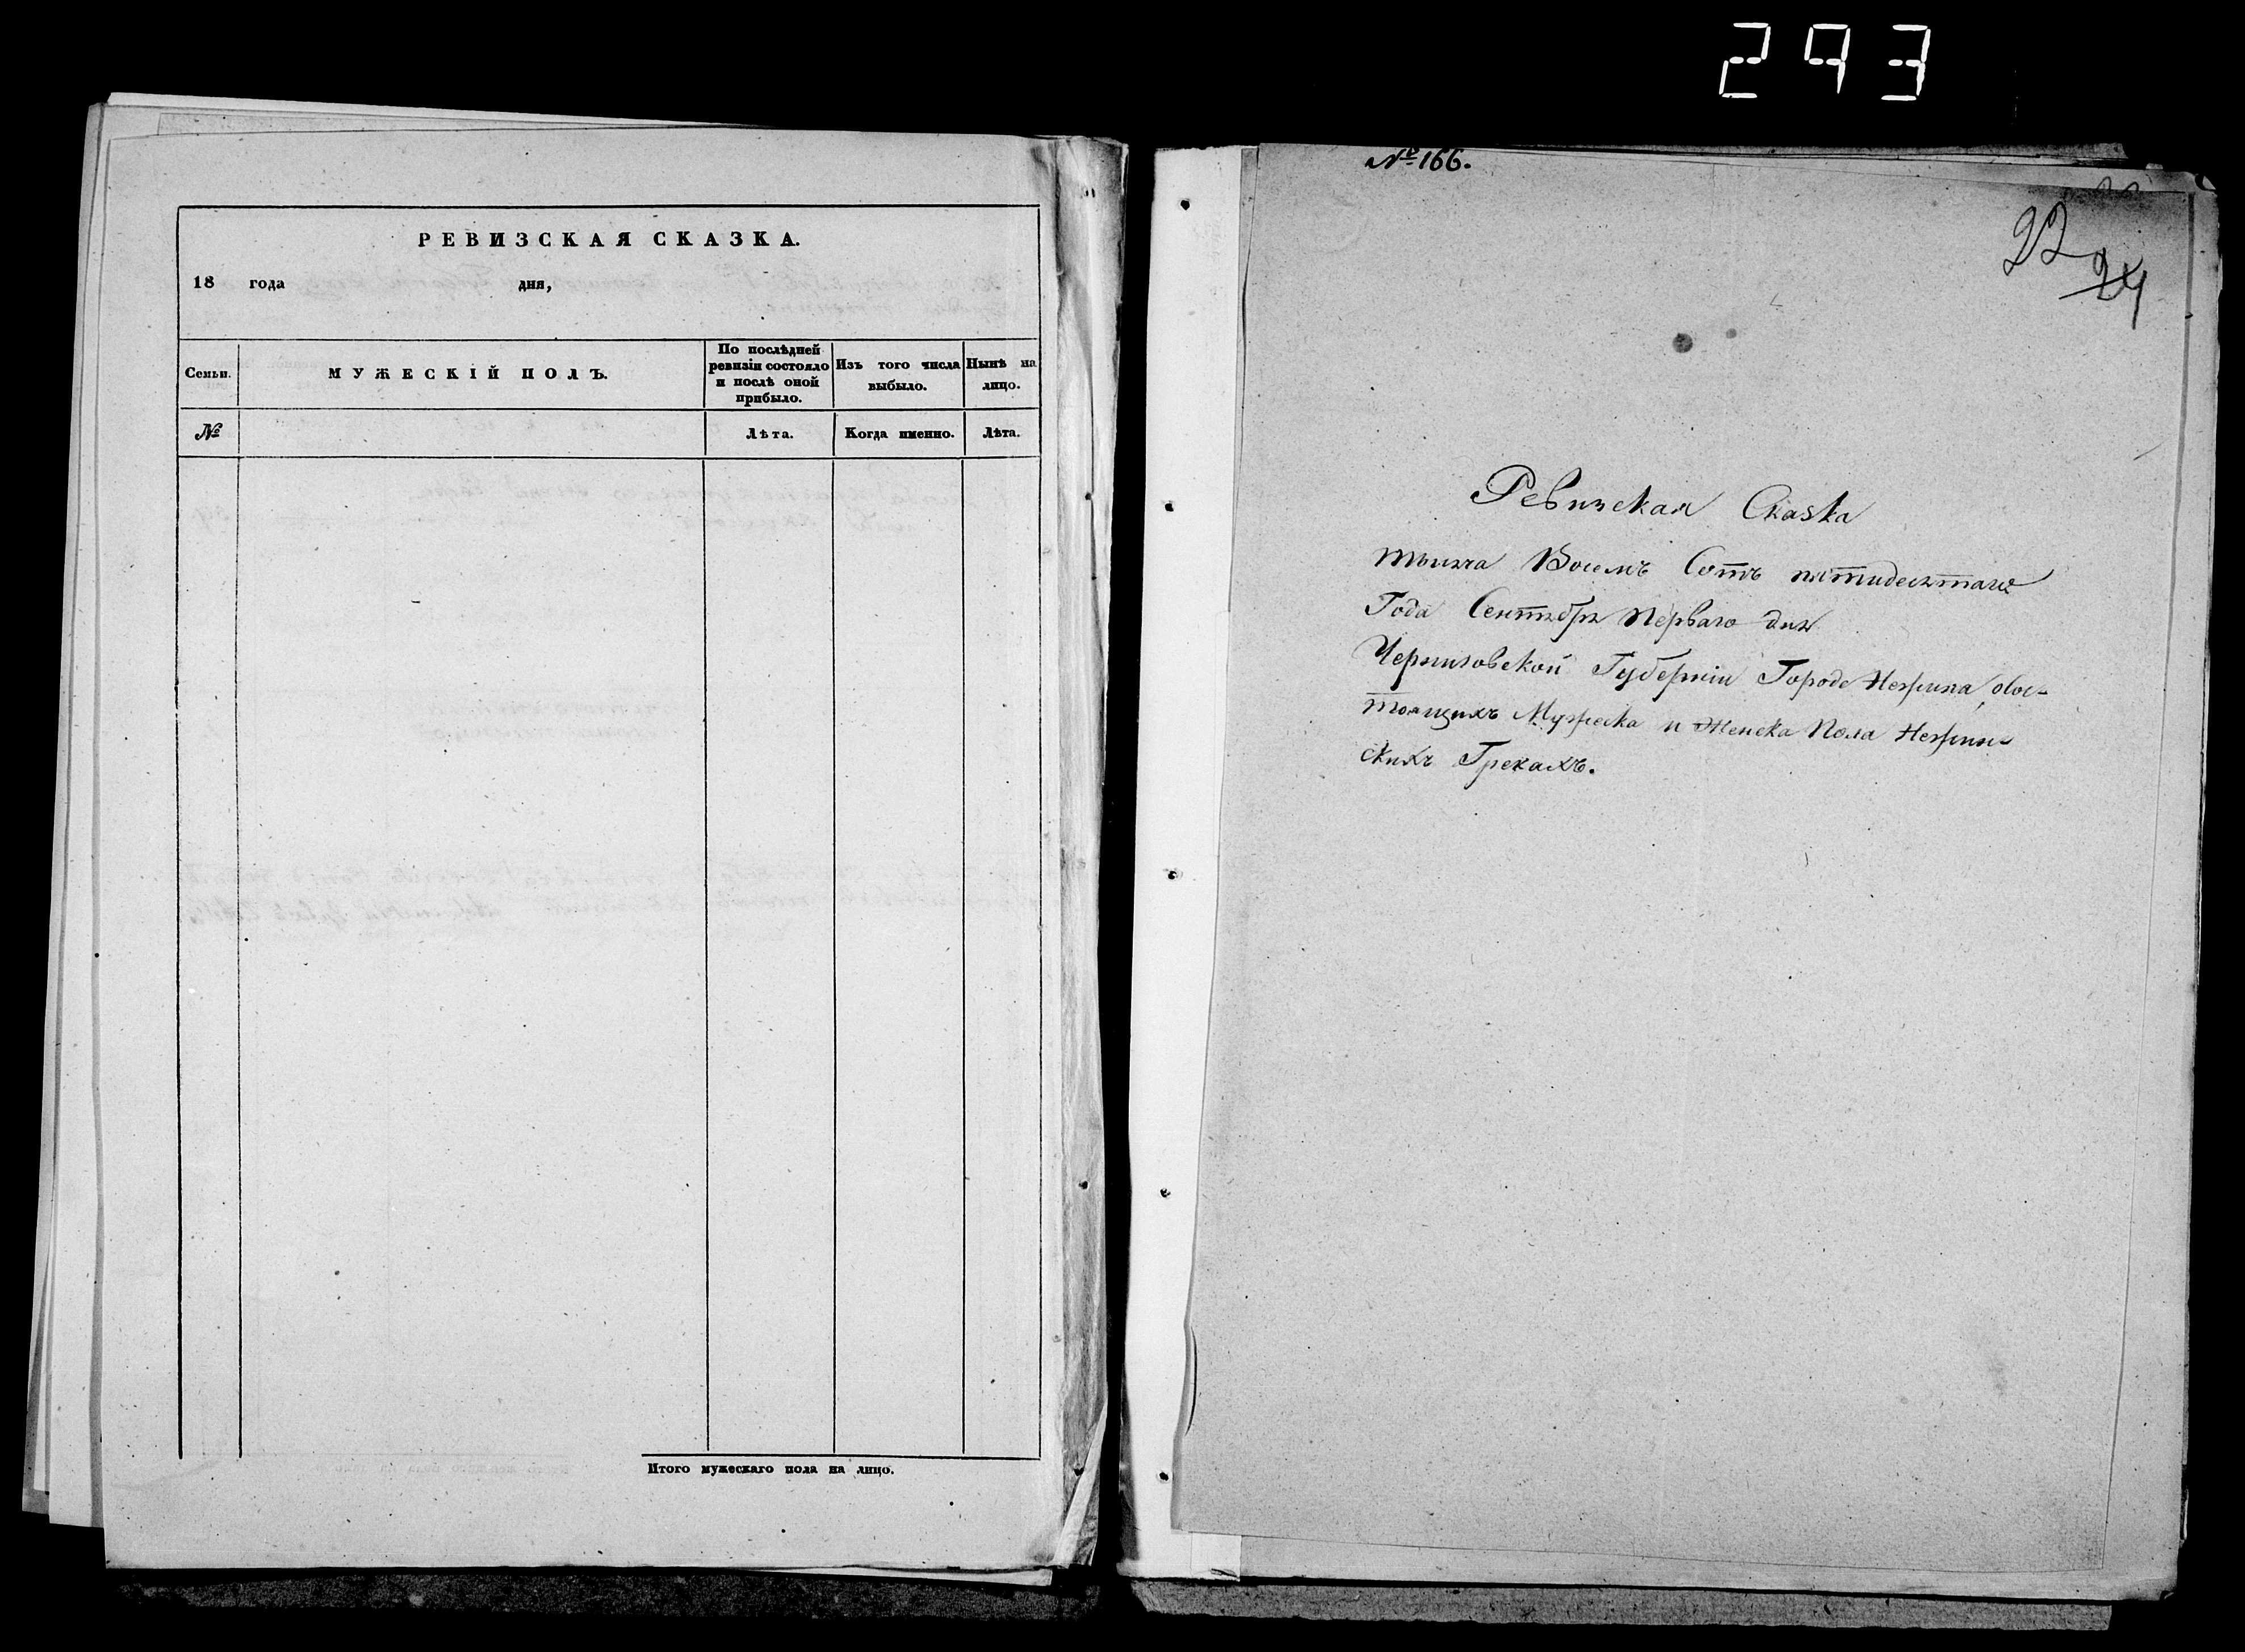 293
РЕВИЗСКАЯ СКАЗКА.
18 года дня,
Семьи.
МУЖЕСКІЙ ПОЛЪ.
По послѣдней
ревизіи состояло
и послѣ оной
прибыло.
Изъ того числа
выбыло.
Нынѣ на
лицо.
№
Лѣта.
Когда именно.
Лѣта.
Итого мужескаго пола на лицо.
№ 166.
22
24
Ревизская Сказка
тысяча Восемъ Сотъ пятидесятаго
Года Сентября Перваго дня
Черниговской Губерніи Города Нежина, о сос-
тоящихъ Мужеска и Женска Пола Нежин-
скихъ Грекахъ.